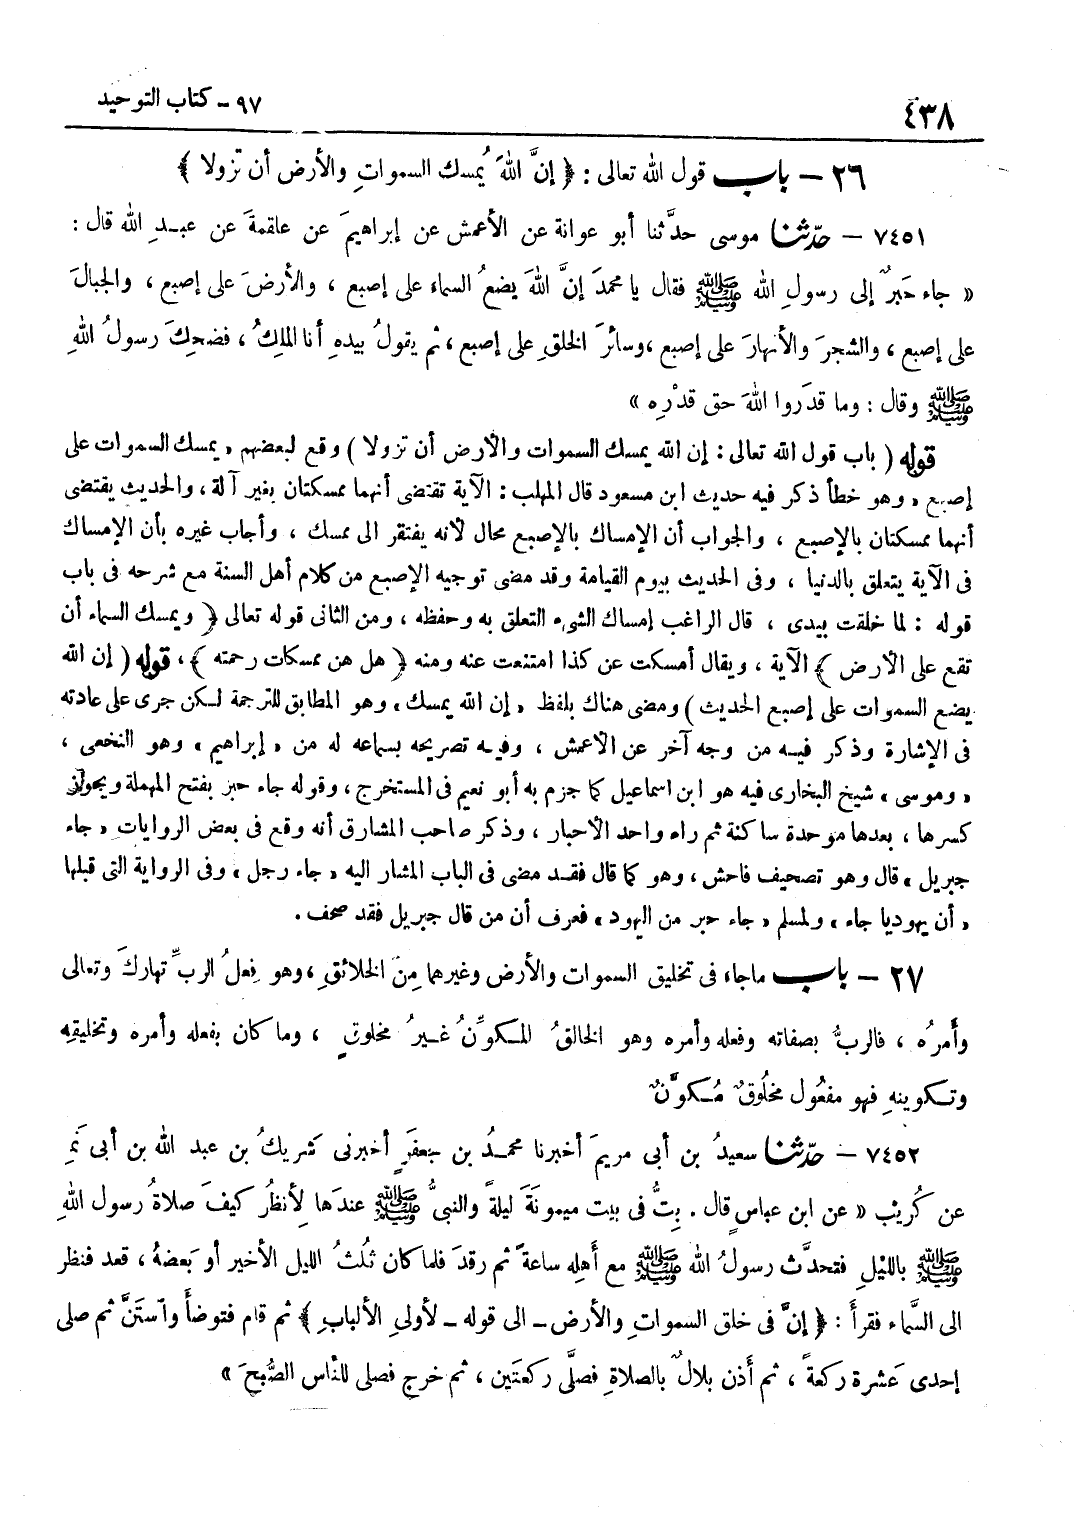 ٤٣٨
٩٧ - كتاب التوحيد
٢٦ – باب قول الله تعالى : ﴿ إنَّ اللهَ يُمسك السموات والأرض أن تزولا ﴾
٧٤٥١ – حدّثنا موسى حدَّثنا أبو عوانة عن الأعمش عن إبراهيمَ عن علقمةَ عن عبدِ الله قال :
« جاء حَبرٌ إلى رسولِ الله ﷺ فقال يا محمدُ إنَّ اللهَ يضعُ السماءَ على إصبع ، والأرضَ على إصبع ، والجبالَ
على إصبع ، والشجرَ والأنهارَ على إصبع ، وسائرَ الخلقِ على إصبع ، ثم يقولُ بيدهِ أنا الملِكُ ، فضحِكَ رسولُ اللهِ
ﷺ وقال : وما قدَروا اللهَ حق قدْرِه »
قوله ( باب قول الله تعالى : إن الله يمسك السموات والأرض أن تزولا ) وقع لبعضهم « يمسك السموات على
إصبع » وهو خطأ ذكر فيه حديث ابن مسعود قال المهلب : الآية تقتضى أنهما ممسكتان بغير آلة ، والحديث يقتضى
أنهما ممسكتان بالإصبع ، والجواب أن الإمساك بالإصبع محال لأنه يفتقر الى ممسك ، وأجاب غيره بأن الإمساك
فى الآية يتعلق بالدنيا ، وفى الحديث بيوم القيامة وقد مضى توجيه الإصبع من كلام أهل السنة مع شرحه فى باب
قوله : لما خلقت بيدى ، قال الراغب إمساك الشىء التعلق به وحفظه ، ومن الثانى قوله تعالى ﴿ ويمسك السماء أن
تقع على الأرض ﴾ الآية ، ويقال أمسكت عن كذا امتنعت عنه ومنه ﴿ هل هن ممسكات رحمته ﴾ ، قوله ( إن الله
يضع السموات على إصبع الحديث ) ومضى هناك بلفظ « إن الله يمسك » وهو المطابق للترجمة لكن جرى على عادته
فى الإشارة وذكر فيه من وجه آخر عن الأعمش ، وفيه تصريحه بسماعه له من « إبراهيم » وهو النخعى ،
« وموسى » شيخ البخارى فيه هو ابن اسماعيل كما جزم به أبو نعيم فى المستخرج ، وقوله جاء حبر بفتح المهملة ويجوز
كسرها ، بعدها موحدة ساكنة ثم راء واحد الأحبار ، وذكر صاحب المشارق أنه وقع فى بعض الروايات « جاء
جبريل » قال وهو تصحيف فاحش ، وهو كما قال فقد مضى فى الباب المشار اليه « جاء رجل » وفى الرواية التى قبلها
« أن يهوديا جاء » ولمسلم « جاء حبر من اليهود » فعرف أن من قال جبريل فقد صحف .
٢٧ – باب ماجاء فى تخليق السموات والأرض وغيرها مِنَ الخلائقِ ، وهو فِعلُ الربِّ تباركَ وتعالى
وأَمرُه ، فالربُّ بصفاته وفعله وأمره وهو الخالقُ المكوِّنُ غيرُ مخلوقٍ ، وما كان بفعله وأمره وتخليقِه
وتكوينهِ فهو مفعُول مخلُوقٌ مُكوَّنٌ
٧٤٥٢ – حدّثنا سعيدُ بن أبى مريمَ أخبرنا محمدُ بن جعفرٍ أخبرنى شريكُ بن عبد الله بن أبى نَمِر
عن كُريْب « عن ابن عباسٍ قال . بِتُّ فى بيت ميمونَةَ ليلةً والنبىُّ ﷺ عندَها لِأنظُرَ كيفَ صلاةُ رسول اللهِ
ﷺ بالليْلِ فتحدَّث رسولُ الله ﷺ مع أَهلِه ساعةً ثم رقدَ فلما كان ثُلثُ الليل الأخير أو بَعضهُ ، قعد فنظر
الى السَّماء فقرأَ : ﴿ إنَّ فى خلق السمواتِ والأرض – الى قوله – لأولى الألبابِ ﴾ ثم قام فتوضأَ وآستَنَّ ثم صلى
إحدى عَشرة ركعةً ، ثم أَذن بلالٌ بالصلاةِ فصلَّى ركعتَين ، ثم خرج فصلى للنَّاس الصُّبحَ »